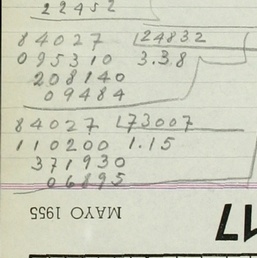 22452
84027 24832
095310 3.38
208140
09484
84027 73007
110200 1.15
371930
06895
MAYO 1955
17